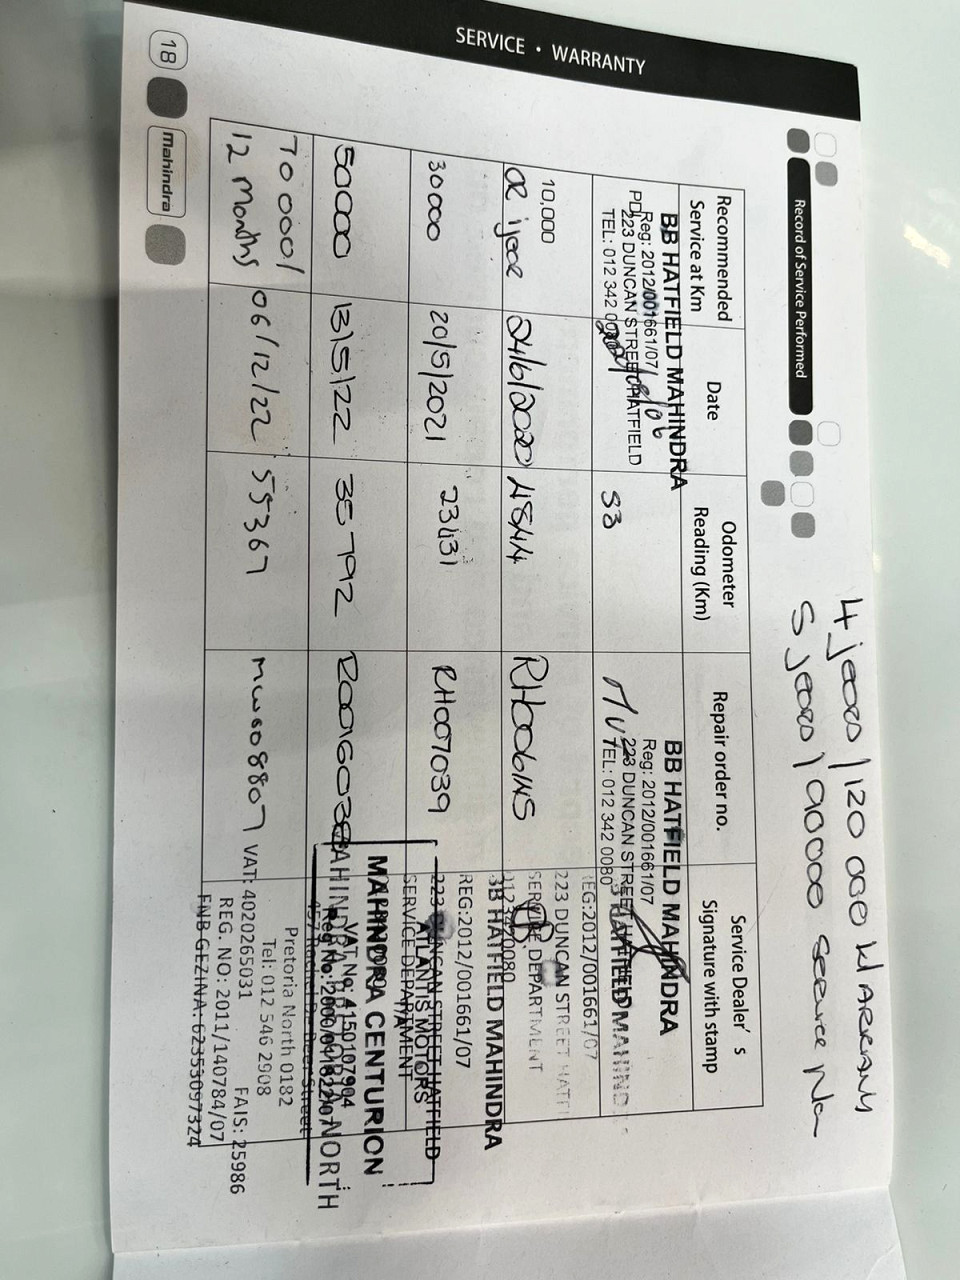 SERVICE • WARRANTY
Record of Service Performed
4 jaar / 120 000 WARRANY
5 jaar / 90000 Service Plan
Recommended Service at Km
Date
Odometer Reading (Km)
Repair order no.
Service Dealer's Signature with stamp
BB HATFIELD MAHINDRA
Reg: 2012/001661/07
PDI
223 DUNCAN STREET HATFIELD
TEL: 012 342 0080
33
BB HATFIELD MAHINDRA
Reg: 2012/001661/07
223 DUNCAN STREET HATFIELD
TEL: 012 342 0080
HATFIELD MAHIND
10,000
OR 1 jaar
24/6/2020
REG:2012/001661/07
223 DUNCAN STREET HATFI
SERVICE DEPARTMENT
012 342 0080
30000
20/5/2021
23131
RH007039
BB HATFIELD MAHINDRA
REG:2012/001661/07
223 DUNCAN STREET HATFIELD
SERVICE DEPARTMENT
50000
13/5/22
35792
MAHINDRA CENTURION
VAT No: 4150107904
70 000/
12 Months
06/12/22
55367
MAHINDRA PRETORIA NORTH
Pretoria North 0182
Tel: 012 546 2908
VAT: 4020265031 FAIS: 25986
REG. NO: 2011/140784/07
FNB GEZINA: 62353097324
18
Mahindra